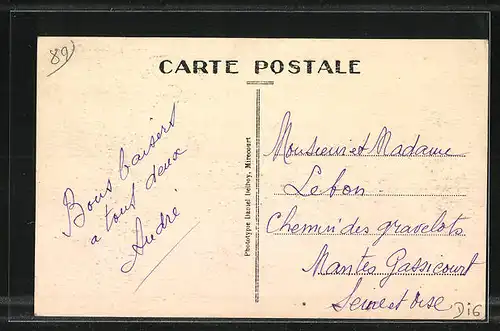 89
CARTE POSTALE
Bons baisers
a tous deux
André
Phototypie Daniel Delboy, Mirecourt
Monsieur et Madame
Lebon
Chemin des gravelots
Mantes Gassicourt
Seine et Oise
D16